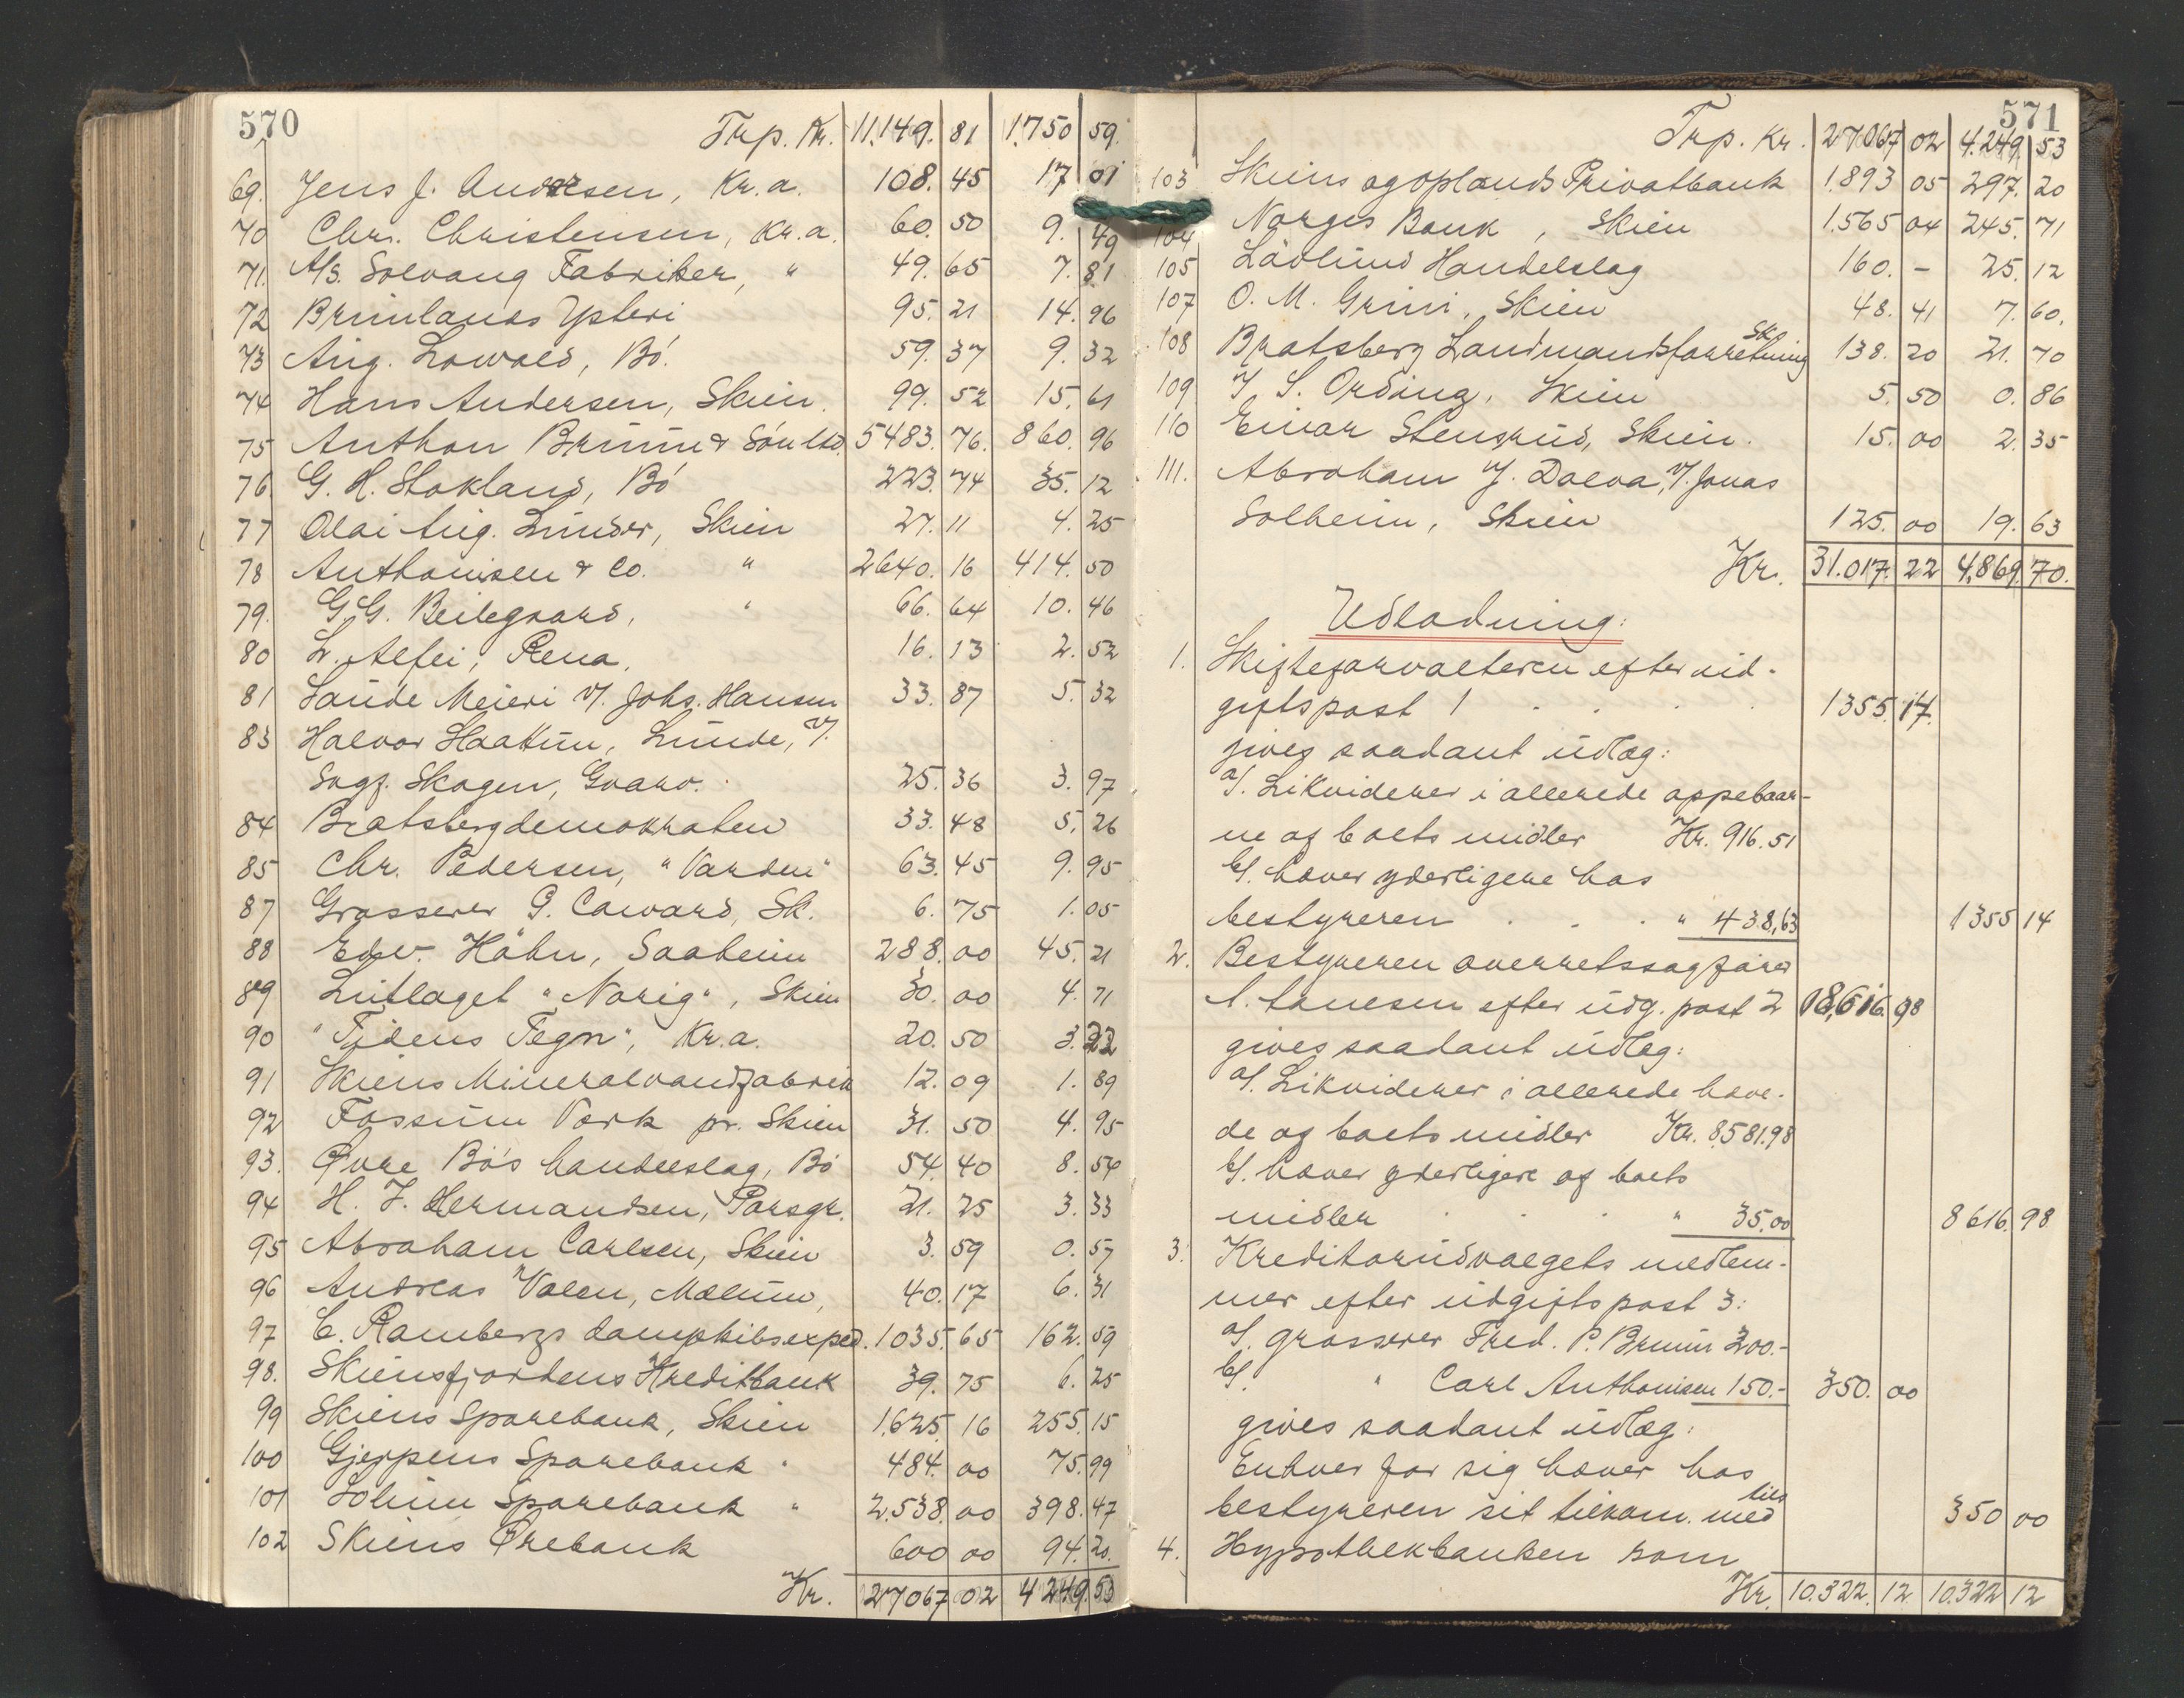 570
Trp. Kr. 11.149. 81 1.750 59.
69. Jens J. Andersen, Kr.a. 108. 45 17 01
70 Chr. Christensen, Kr.a. 60. 50 9. 49
71. A/s. Solvang Fabriker, " 49. 65 7. 81
72 Brunlanes Ysteri 95. 21 14. 96
73 Aug. Lowold, Bö. 59. 37 9. 32
74 Hans Andersen, Skien. 99. 52 15. 61
75 Anthon Bruun & Sön ltd. 5483. 76. 860. 96
76. G. H. Stokland, Bö 223. 74 35. 12
77 Olai Aug. Linder, Skien 27. 11 4. 25
78 Anthonisen & Co. " 2640. 16 414. 50
79. G.G. Beilegaard, " 66. 64 10. 46
80 L. Alfei, Rena, 16. 13 2. 52
81 Sande Meieri v/. Johs. Hansen 33. 87 5. 32
83 Halvor Haatün, Lunde, v/.
Sagf. Skogen, Gvarv. 25. 36 3. 97
84 Bratsbergdemokraten 33. 48 5. 26
85 Chr. Pedersen, "Varden" 63. 45 9. 95
87 Grosserer G. Coward, Sk. 6. 75 1. 05
88 Edv. Höhn, Saaheim 288. 00 45. 21
89 Lutlaget "Norig", Skien 30. 00 4. 71
90 "Tidens Tegn", Kr.a. 20. 50 3. 22
91 Skiens Mineralvandfabrik 12. 09 1. 89
92 Fossum Verk pr. Skien 31. 50 4. 95
93. Øvre Bö's handelslag, Bö 54. 40 8. 54
94 H. J. Hermandsen, Porsgr. 21. 25 3. 33
95 Abraham Carlsen, Skien 3. 59 0. 57
96 Andreas Valen, Mælum, 40. 17 6. 31
97 C. Rambergs dampskibsexped. 1035. 65 162. 59
98. Skiensfjordens Kreditbank 39. 75 6. 25
99 Skiens Sparebank, Skien 1.625. 16 255. 15
100 Gjerpens Sparebank " 484. 00 75. 99
101 Solum Sparebank " 2.538. 00 398. 47
102 Skiens Ørebank 600 00 94. 20.
Kr. 27067 02 4249. 53
571
Trp. Kr. 27067 02 4.249. 53
103 Skiens og oplands Privatbank 1.893 05 297. 20
104 Norges Bank, Skien 1.565 04 245. 71
105 Lövlund Handelslag 160. - 25. 12
107 O. M. Grini, Skien 48. 41 7. 60.
108 Bratsberg Landmandsforretning Sk. 138. 20 21. 70
109 J S. Ording, Skien 5. 50 0. 86
110 Einar Stensrud, Skien. 15. 00 2. 35
111. Abraham J. Dolva, v/. Jonas
Solheim, Skien 125. 00 19. 63
Kr. 31.017. 22 4.869. 70.
Udlodning:
1. Skifteforvalteren efter ud-
giftspost 1 . . . . 1355. 14.
gives saadant udlæg:
a/. Likviderer i allerede oppebaar-
ne af boets midler Kr. 916.51
b/. hæver yderligere hos
bestyreren . . . " 438,63 1355 14
2. Bestyreren overretssagfører
A. Lauesen efter udg. post 2 8,616. 98
gives saadant udlæg:
a/. Likviderer i allerede hæve-
de af boets midler Kr. 8581.98
b/. hæver yderligere af boets
midler . . . " 35.00 8616. 98
3. Kreditorudvalgets medlem-
mer efter utgiftspost 3:
a/. grosserer Fred. P. Bruun 200.-
b/. " Carl Anthonisen 150.- 350. 00
gives saadant udlæg:
Enhver for sig hæver hos
bestyreren sit tilkom. med tils 350 00
4. Hypothekbanken som
Kr. 10.322. 12 10.322 12